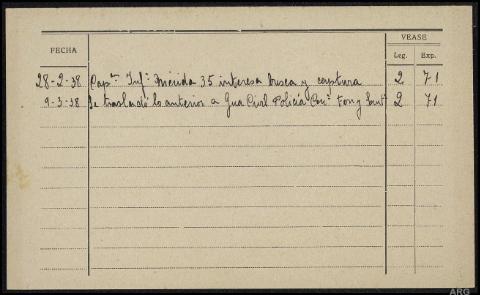 VEASE
FECHA
Leg. Exp.
28-2-38 Capn. Infª. Mérida 35 interesa busca y captura 2 71
9-3-38 Se trasladó lo anterior a Gua Civil Policía y 2 71
ARG